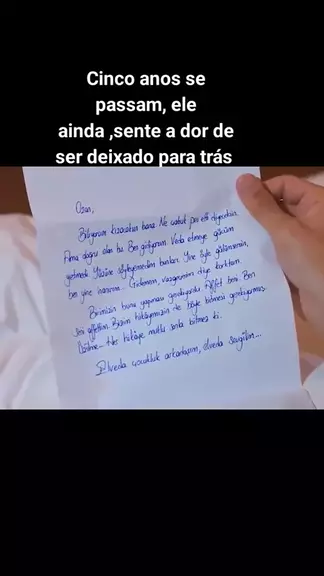 Cinco anos se
passam, ele
ainda ,sente a dor de
ser deixado para trás
Ozan,
Biliyorum kızacaksın bana. Ne çabuk pes etti diyeceksin.
Ama doğru olan bu. Ben gidiyorum. Veda etmeye gücüm
yetmedi. Yüzüne söyleyemedim bunları. Yine öyle gülümsersin,
ben yine inanırım... Gidemem, vazgeçerim diye korktum.
Birimizin bunu yapması gerekiyordu. Affet beni. Ben
seni affettim. Bizim hikayemizin de böyle bitmesi gerekiyormuş.
Üzülme... Her hikaye mutlu sonla bitmez ki.
Elveda çocukluk arkadaşım, elveda sevgilim...